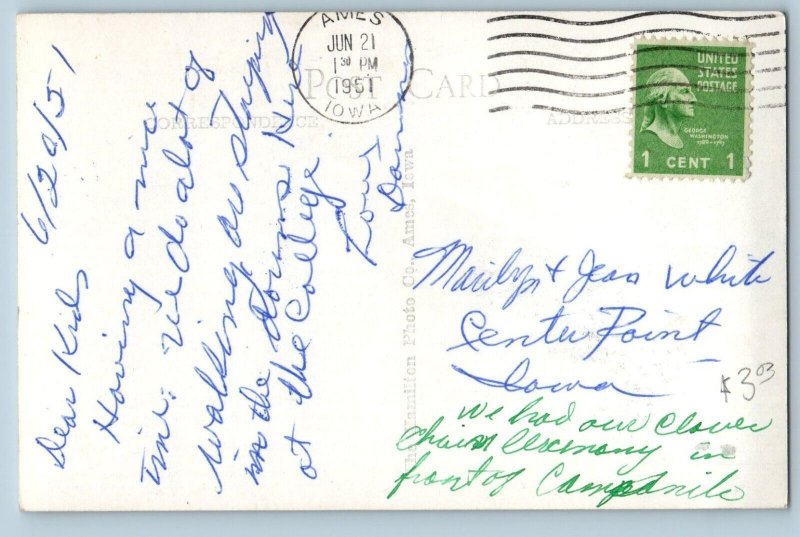 6/20/51
Dear Kids
Having a nice
time. We do a lot of
walking as staying
in the dorms here
at the College
Love
POST CARD
CORRESPONDENCE
ADDRESS
Hamilton Photo Co. Ames, Iowa
AMES
JUN 21
1 30 PM
1951
IOWA
UNITED
STATES
POSTAGE
GEORGE
WASHINGTON
1789-1797
1 CENT 1
Marilyn & Jean White
Center Point
Iowa
$3.03
We had our Clover
Chain Ceremony in
front of Campanile